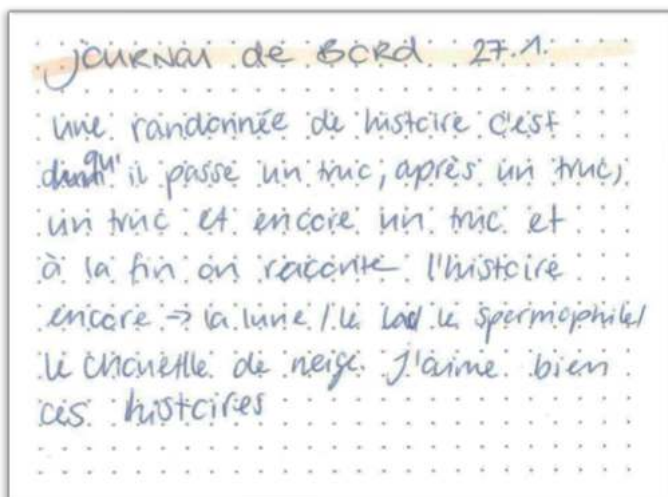 Journal de Bord 27.1.
une randonnée de histoire c'est
qu' il passe un truc, après un truc,
un truc et encore un truc et
à la fin on raconte l'histoire
encore → la lune / le le spermophile/
le chouette de neige. J'aime bien
ces histoires